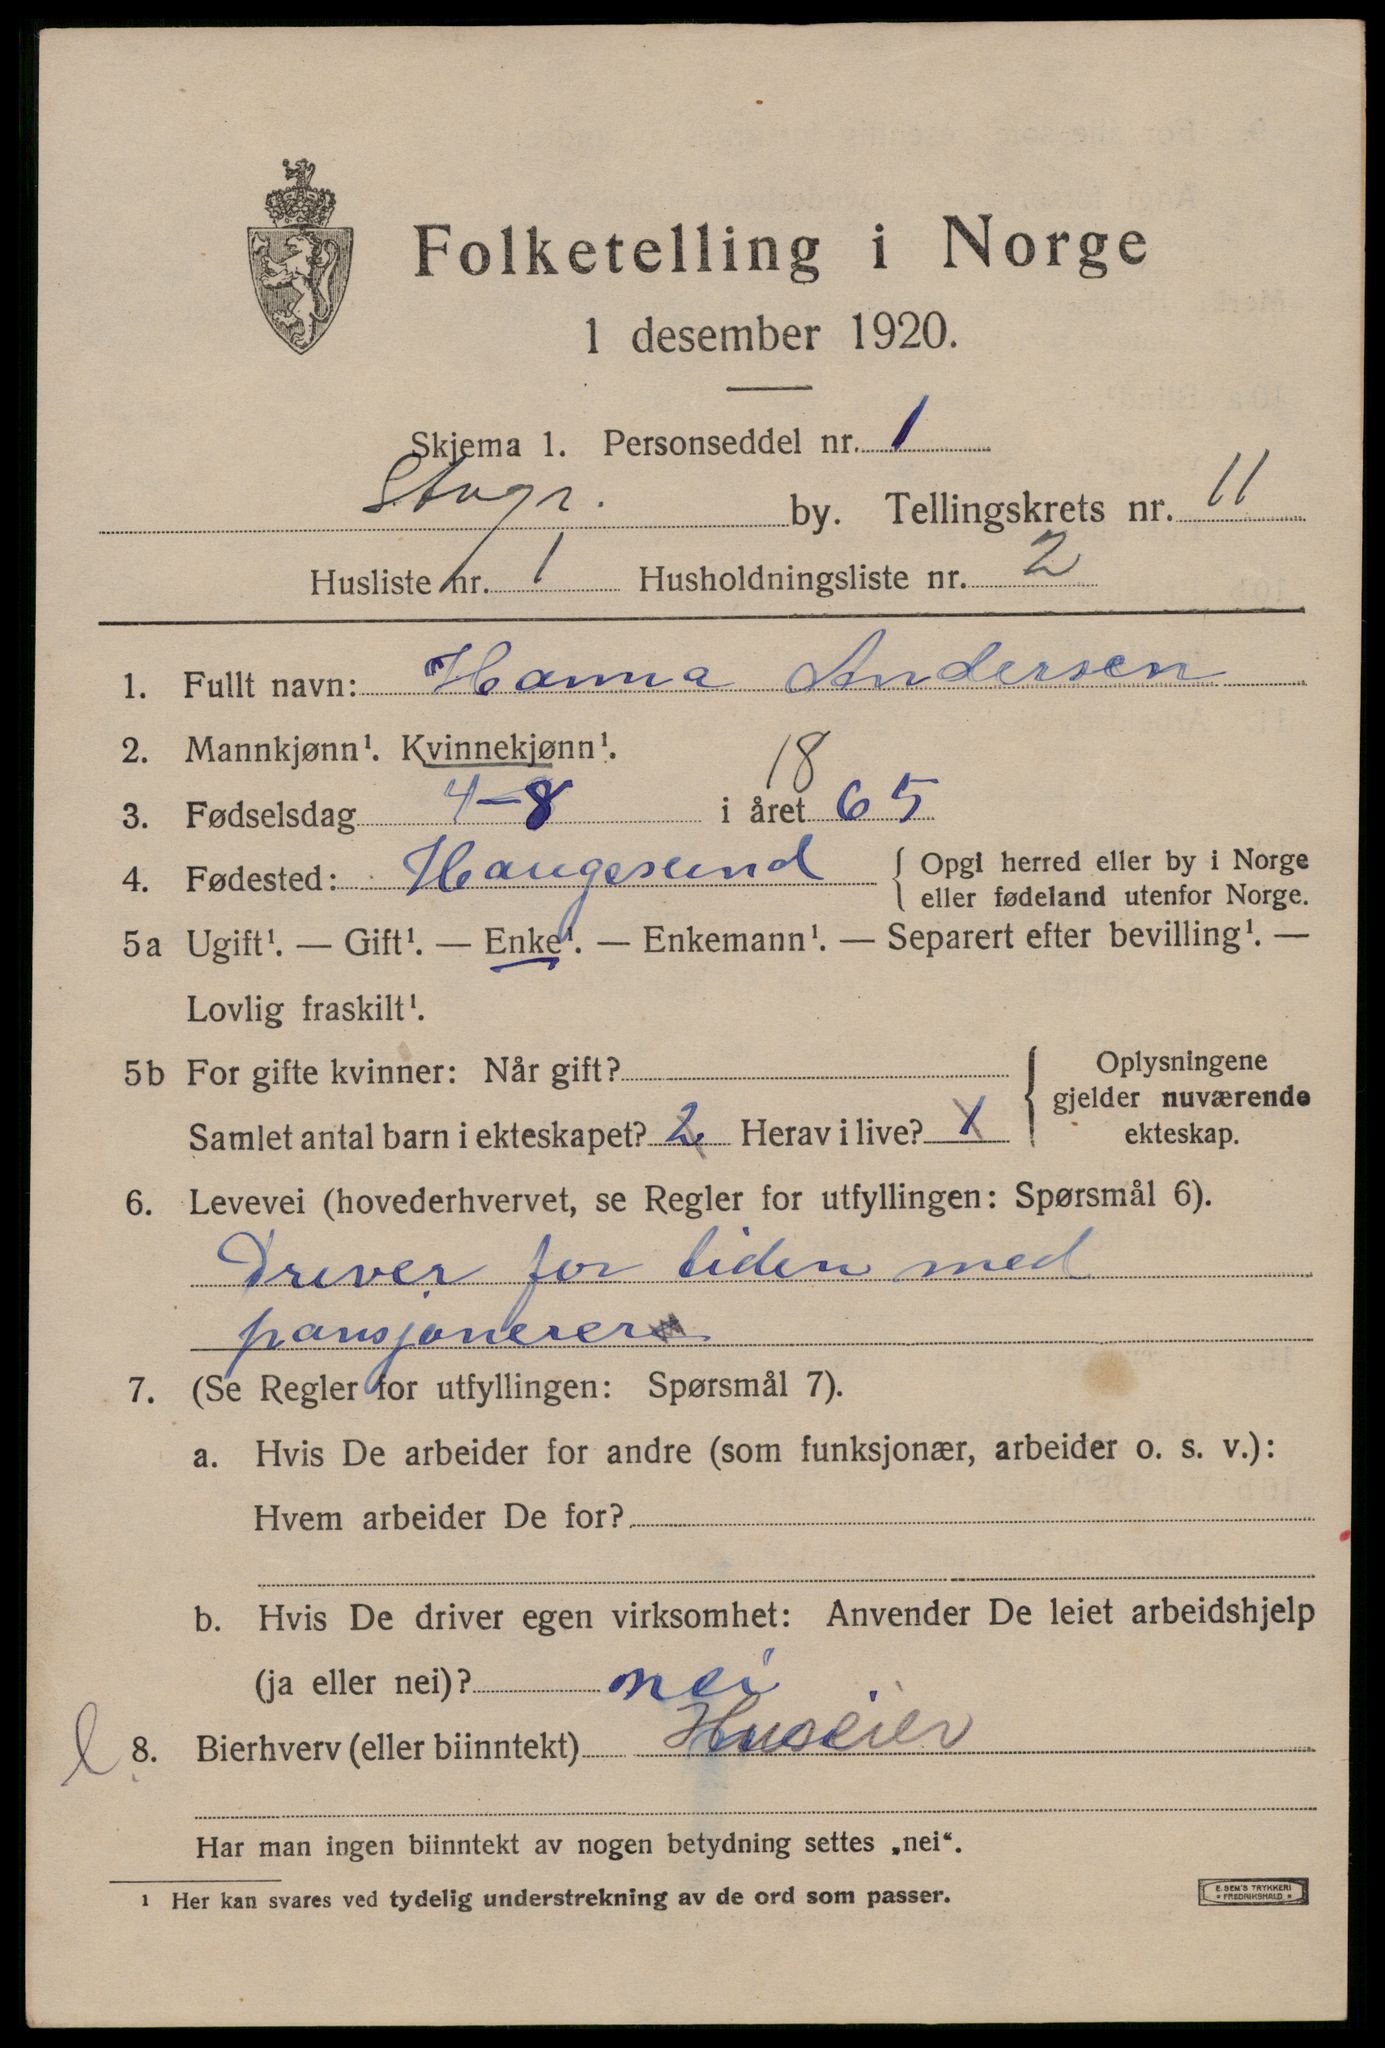 Folketelling i Norge
1 desember 1920.
Skjema 1. Personseddel nr. 1
Stvgr. by. Tellingskrets nr. 11
Husliste nr. 1 Husholdningsliste nr. 2
1. Fullt navn: Hanna Andersen
2. Mannkjønn¹. Kvinnekjønn¹.
3. Fødselsdag 4-8 i året 1865
4. Fødested: Haugesund { Opgi herred eller by i Norge
eller fødeland utenfor Norge.
5a Ugift¹. — Gift¹. — Enke¹. — Enkemann¹. — Separert efter bevilling¹. —
Lovlig fraskilt¹.
5b For gifte kvinner: Når gift? { Oplysningene
gjelder nuværende
Samlet antal barn i ekteskapet? 2 Herav i live? 1 ekteskap.
6. Levevei (hovederhvervet, se Regler for utfyllingen: Spørsmål 6).
Driver for tiden med
pansjonerer
7. (Se Regler for utfyllingen: Spørsmål 7).
a. Hvis De arbeider for andre (som funksjonær, arbeider o. s. v.):
Hvem arbeider De for?
b. Hvis De driver egen virksomhet: Anvender De leiet arbeidshjelp
(ja eller nei)? nei
8. Bierhverv (eller biinntekt) Huseier
Har man ingen biinntekt av nogen betydning settes „nei“.
¹ Her kan svares ved tydelig understrekning av de ord som passer.
E. SEM'S TRYKKERI
FREDRIKSHALD